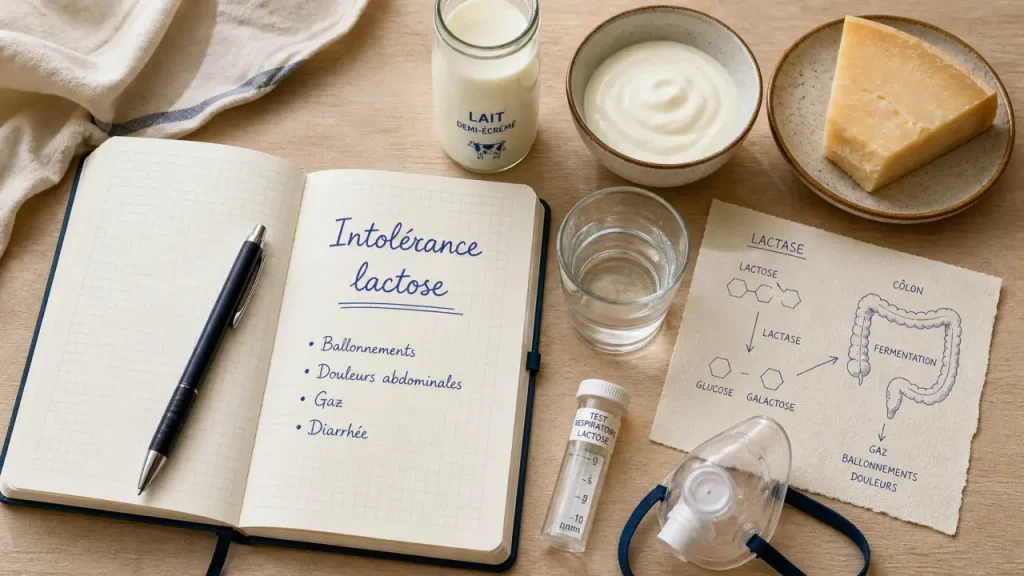 LAIT
DEMI-ÉCRÉMÉ
Intolérance
lactose
• Ballonnements
• Douleurs abdominales
• Gaz
• Diarrhée
LACTASE
LACTOSE
LACTASE
GLUCOSE
GALACTOSE
CÔLON
FERMENTATION
GAZ
BALLONNEMENTS
DOULEURS
TEST
RESPIRATOIRE
LACTOSE